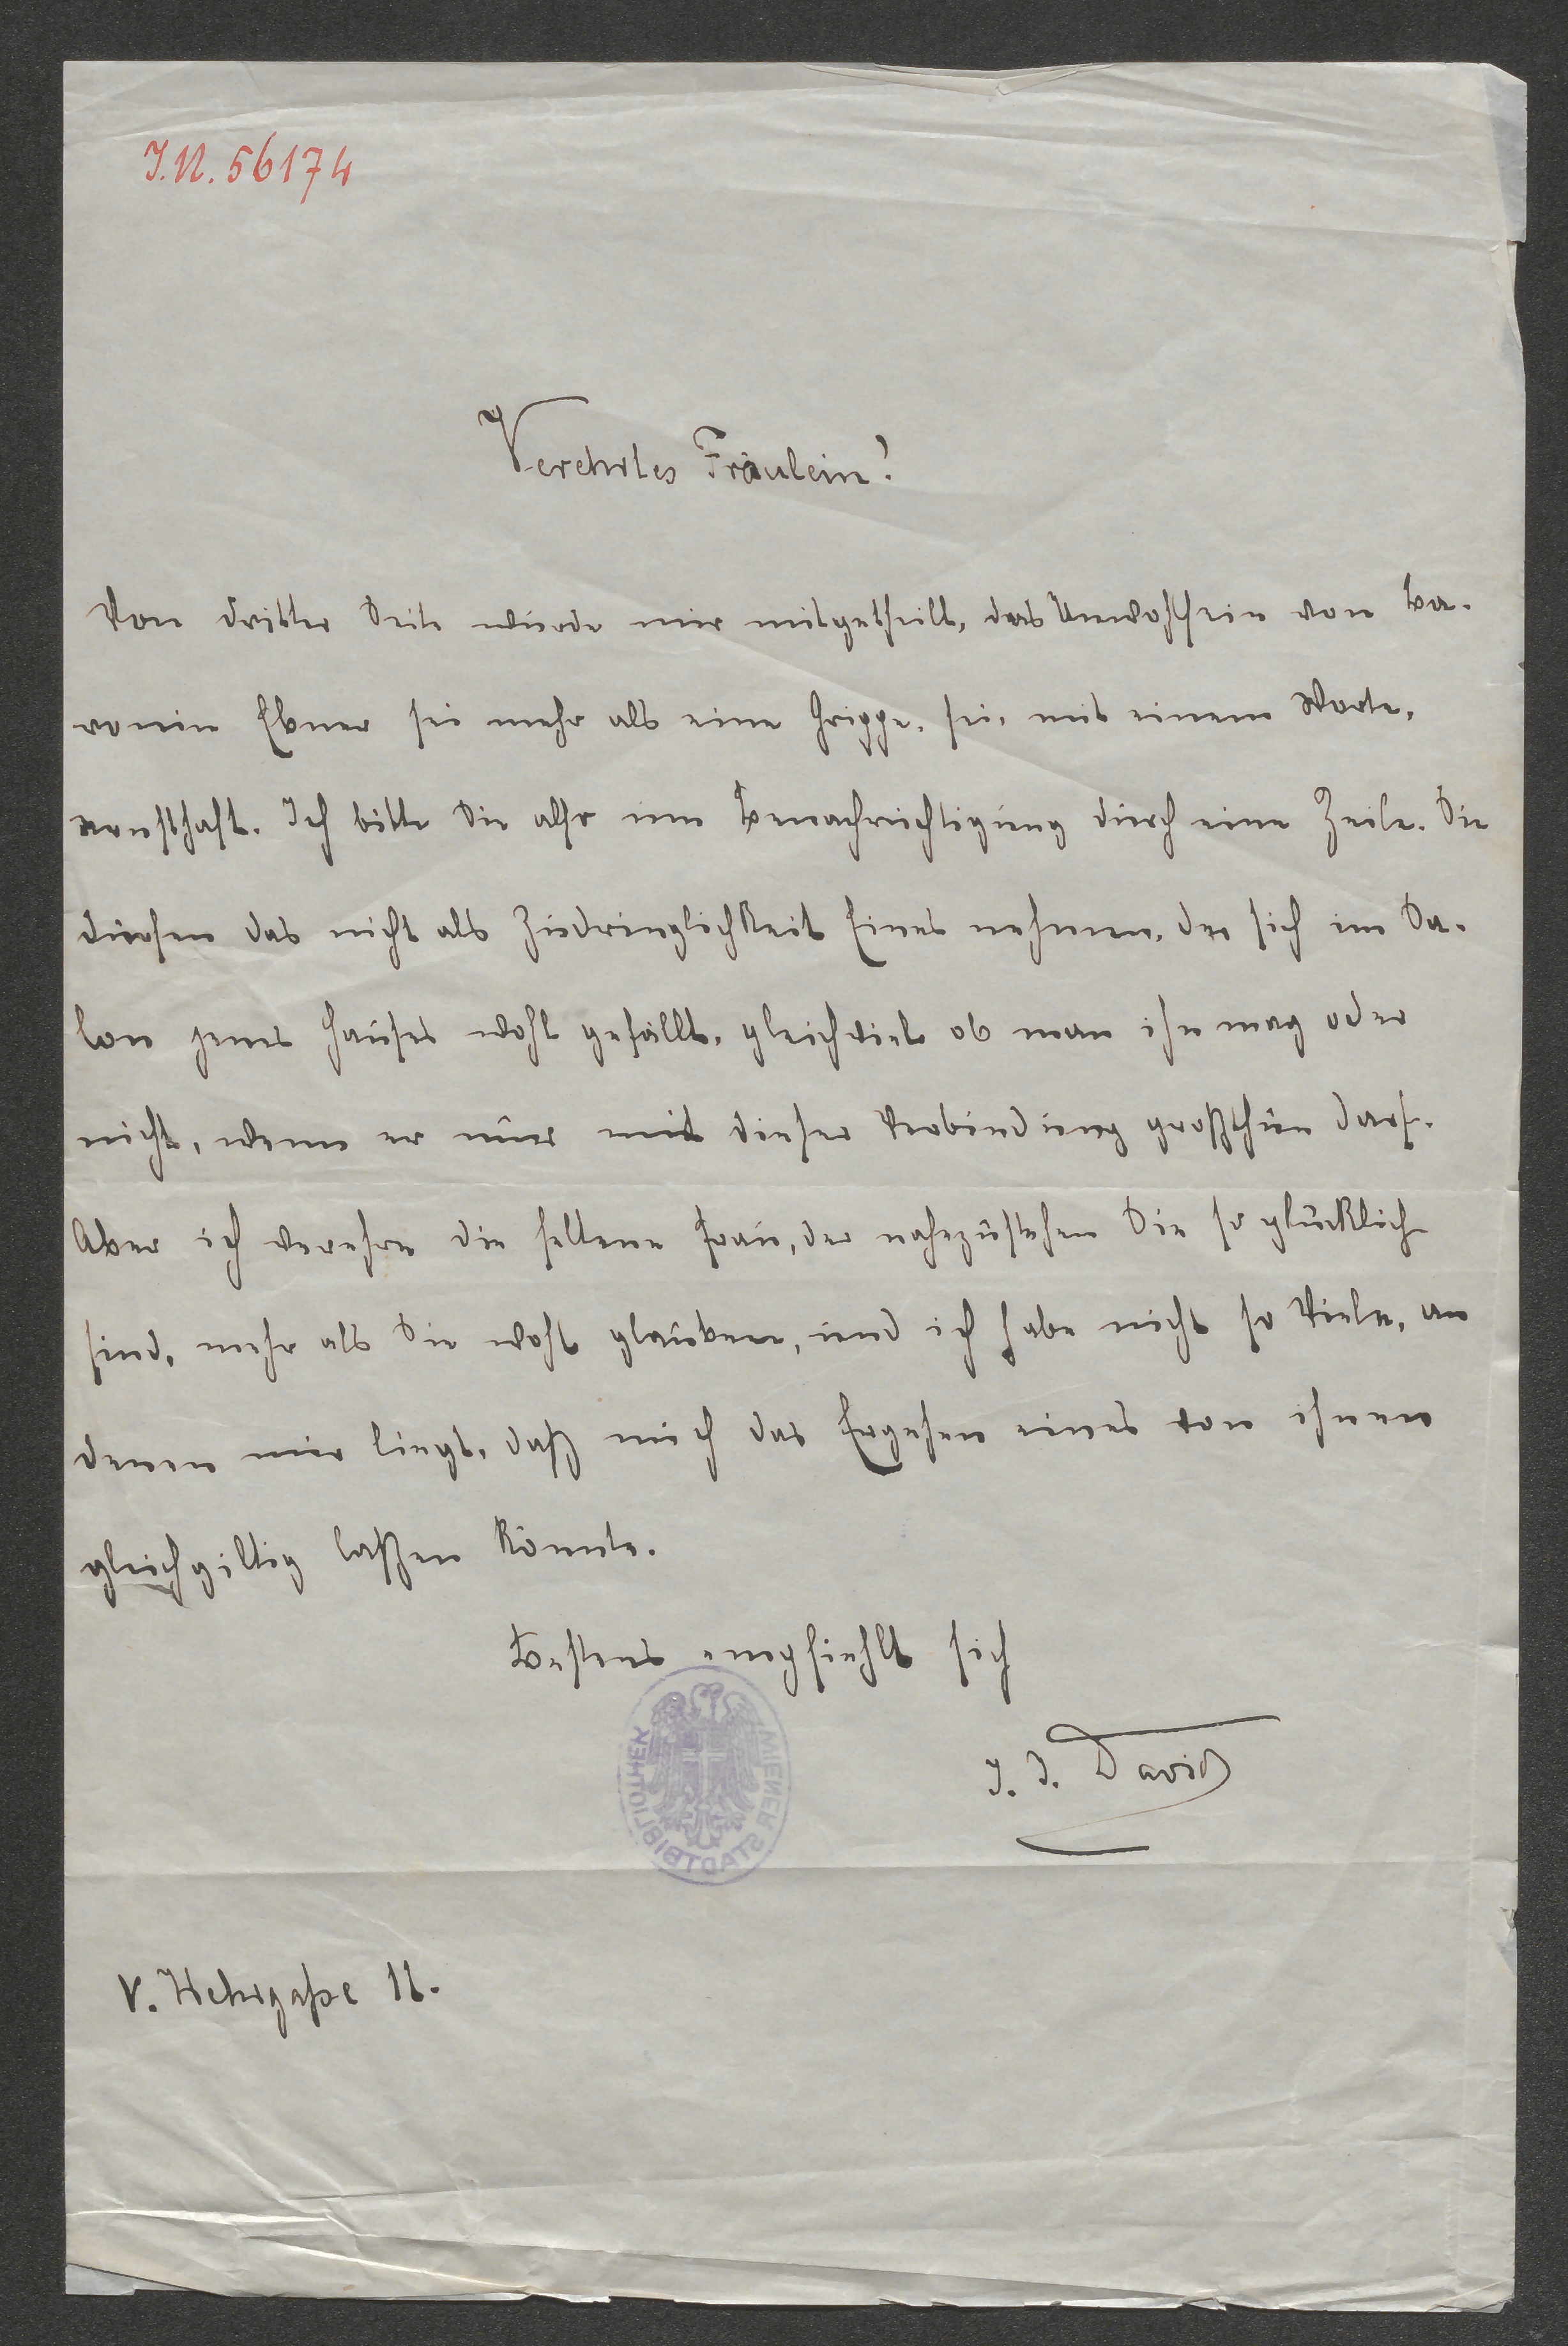 J.N. 56174
Verehrtes Fräulein!
Von dritter Seite wurde mir mitgetheilt, das Unwohlsein von Ba-
ronin Ebner sei mehr als eine Grippe, sei, mit einem Worte,
ernsthaft. Ich bitte Sie also um Benachrichtigung durch eine Zeile. Sie
dürfen das nicht als Zudringlichkeit Eines nehmen, der sich im Sa-
lon jenes Hauses wohl gefällt, gleichviel ob man ihn mag oder
nicht, wenn er nur mit dieser Verbindung großthun darf.
Aber ich verehre die seltene Frau, der nahezustehen Sie so glücklich
sind, mehr als Sie wohl glauben, und ich habe nicht so Viele, an
denen mir liegt, daß mich das Ergehen eines von ihnen
gleichgiltig laßen könnte.
Bestens empfiehlt sich
J. J. David
WIENER STADTBIBLIOTHEK
V. Wehrgasse 11.